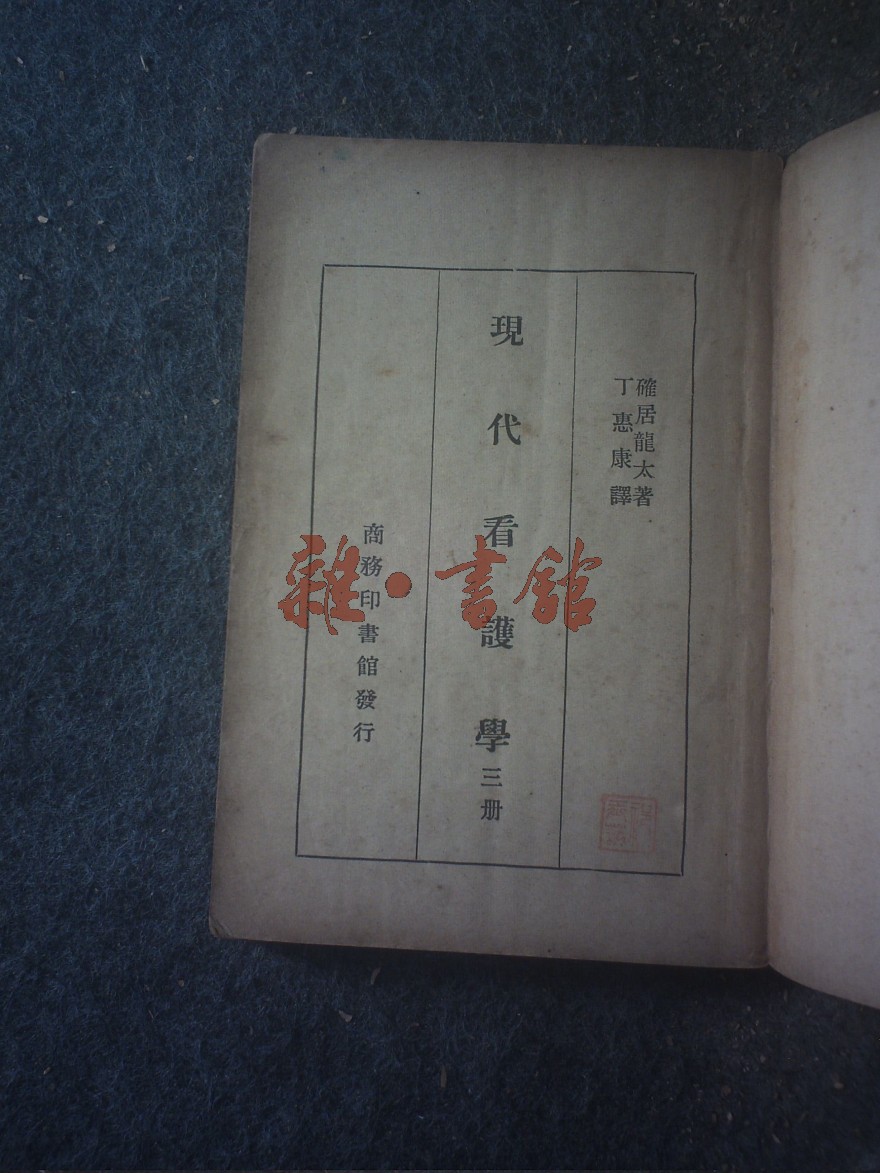 確居龍太著
丁惠康譯
現代看護學 三册
商務印書館發行
雜·書館